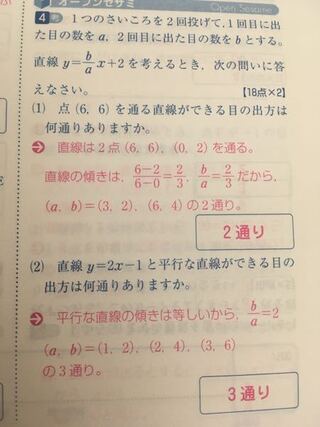 オープンセサミ Open Sesame
4 1つのさいころを2回投げて，1回目に出
た目の数をa，2回目に出た目の数をbとする。
直線 y=b/a x+2 を考えるとき，次の問いに答
えなさい。 【18点×2】
(1) 点(6, 6)を通る直線ができる目の出方は
何通りありますか。
直線は2点(6, 6)，(0, 2)を通る。
直線の傾きは，6−2/6−0=2/3，b/a=2/3だから，
(a, b)=(3, 2)，(6, 4)の2通り。
2通り
(2) 直線 y=2x−1 と平行な直線ができる目の
出方は何通りありますか。
平行な直線の傾きは等しいから，b/a=2
(a, b)=(1, 2)，(2, 4)，(3, 6)
の3通り。
3通り